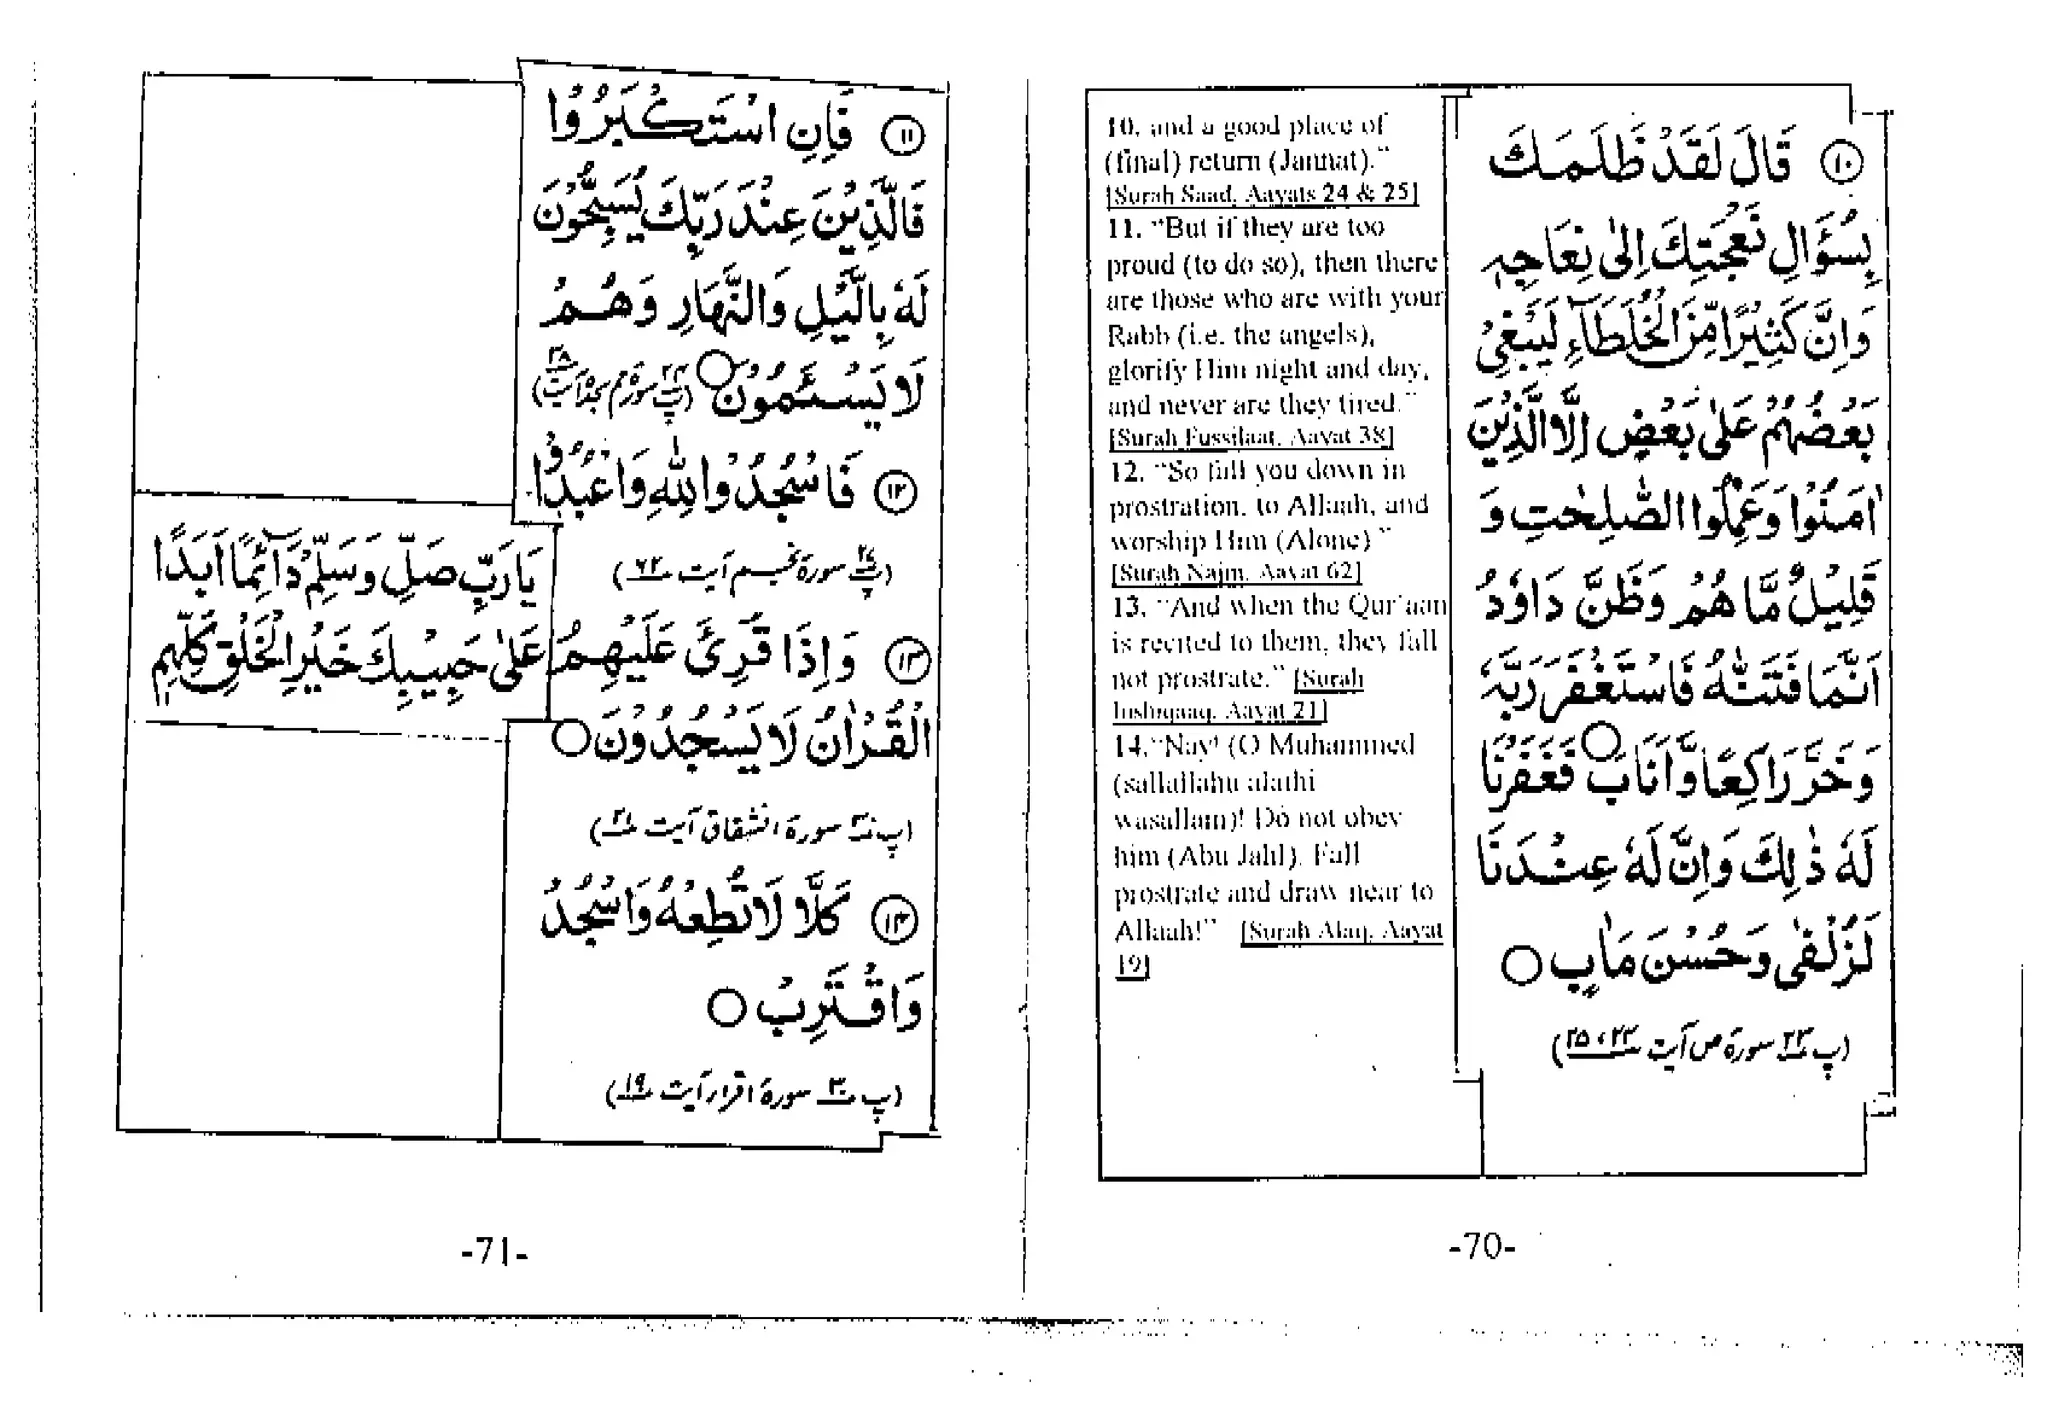 10. and a good place of
(final) return (Jannat)."
[Surah Saad, Aayats 24 & 25]
11. "But if they are too
proud (to do so), then there
are those who are with your
Rabb (i.e. the angels),
glorify Him night and day,
and never are they tired."
[Surah Fussilaat, Aayat 38]
12. "So fall you down in
prostration, to Allaah, and
worship Him (Alone)."
[Surah Najm, Aayat 62]
13. "And when the Qur'aan
is recited to them, they fall
not prostrate." [Surah
Inshiqaaq, Aayat 21]
14. "Nay! (O Muhammed
(sallallahu alaihi
wasallam)! Do not obey
him (Abu Jahl). Fall
prostrate and draw near to
Allaah!" [Surah Alaq, Aayat
19]
۱۰ قَالَ لَقَدْ ظَلَمَكَ
بِسُؤَالِ نَعْجَتِكَ اِلٰى نِعَاجِهٖ
وَاِنَّ كَثِيْرًا مِّنَ الْخُلَطَآءِ لَيَبْغِيْ
بَعْضُهُمْ عَلٰى بَعْضٍ اِلَّا الَّذِيْنَ
اٰمَنُوْا وَعَمِلُوا الصّٰلِحٰتِ وَ
قَلِيْلٌ مَّا هُمْ وَظَنَّ دَاوٗدُ
اَنَّمَا فَتَنّٰهُ فَاسْتَغْفَرَ رَبَّهٗ
وَخَرَّ رَاكِعًا وَّاَنَابَ ○ فَغَفَرْنَا
لَهٗ ذٰلِكَ وَاِنَّ لَهٗ عِنْدَنَا
لَزُلْفٰى وَحُسْنَ مَاٰبٍ ○
(پ ۲۳ سورۃ ص آیت ۲۴، ۲۵)
-70-
۱۱ فَاِنِ اسْتَكْبَرُوْا
فَالَّذِيْنَ عِنْدَ رَبِّكَ يُسَبِّحُوْنَ
لَهٗ بِالَّيْلِ وَالنَّهَارِ وَهُمْ
لَا يَسْئَمُوْنَ ○ (پ ۲۴ سورۃ حٰم سجدۃ آیت ۳۸)
۱۲ فَاسْجُدُوْا لِلّٰهِ وَاعْبُدُوْا
(پ ۲۷ سورۃ نجم آیت ۶۲)
۱۳ وَاِذَا قُرِئَ عَلَيْهِمُ
الْقُرْاٰنُ لَا يَسْجُدُوْنَ ○
(پ ۳۰ سورۃ انشقاق آیت ۲۱)
۱۴ كَلَّا لَا تُطِعْهُ وَاسْجُدْ
وَاقْتَرِبْ ○
(پ ۳۰ سورۃ اقراء آیت ۱۹)
يَا رَبِّ صَلِّ وَسَلِّمْ دَآئِمًا اَبَدًا
عَلٰى حَبِيْبِكَ خَيْرِ الْخَلْقِ كُلِّهِمِ
-71-